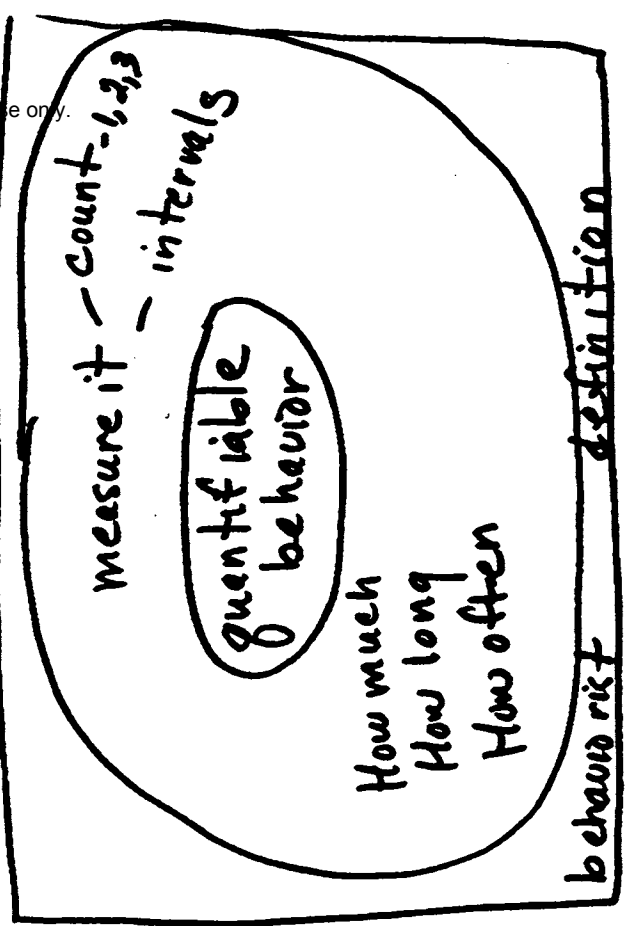 se only.
measure it - count - 1, 2, 3
- intervals
quantifiable
behavior
How much
How long
How often
behaviorist definition